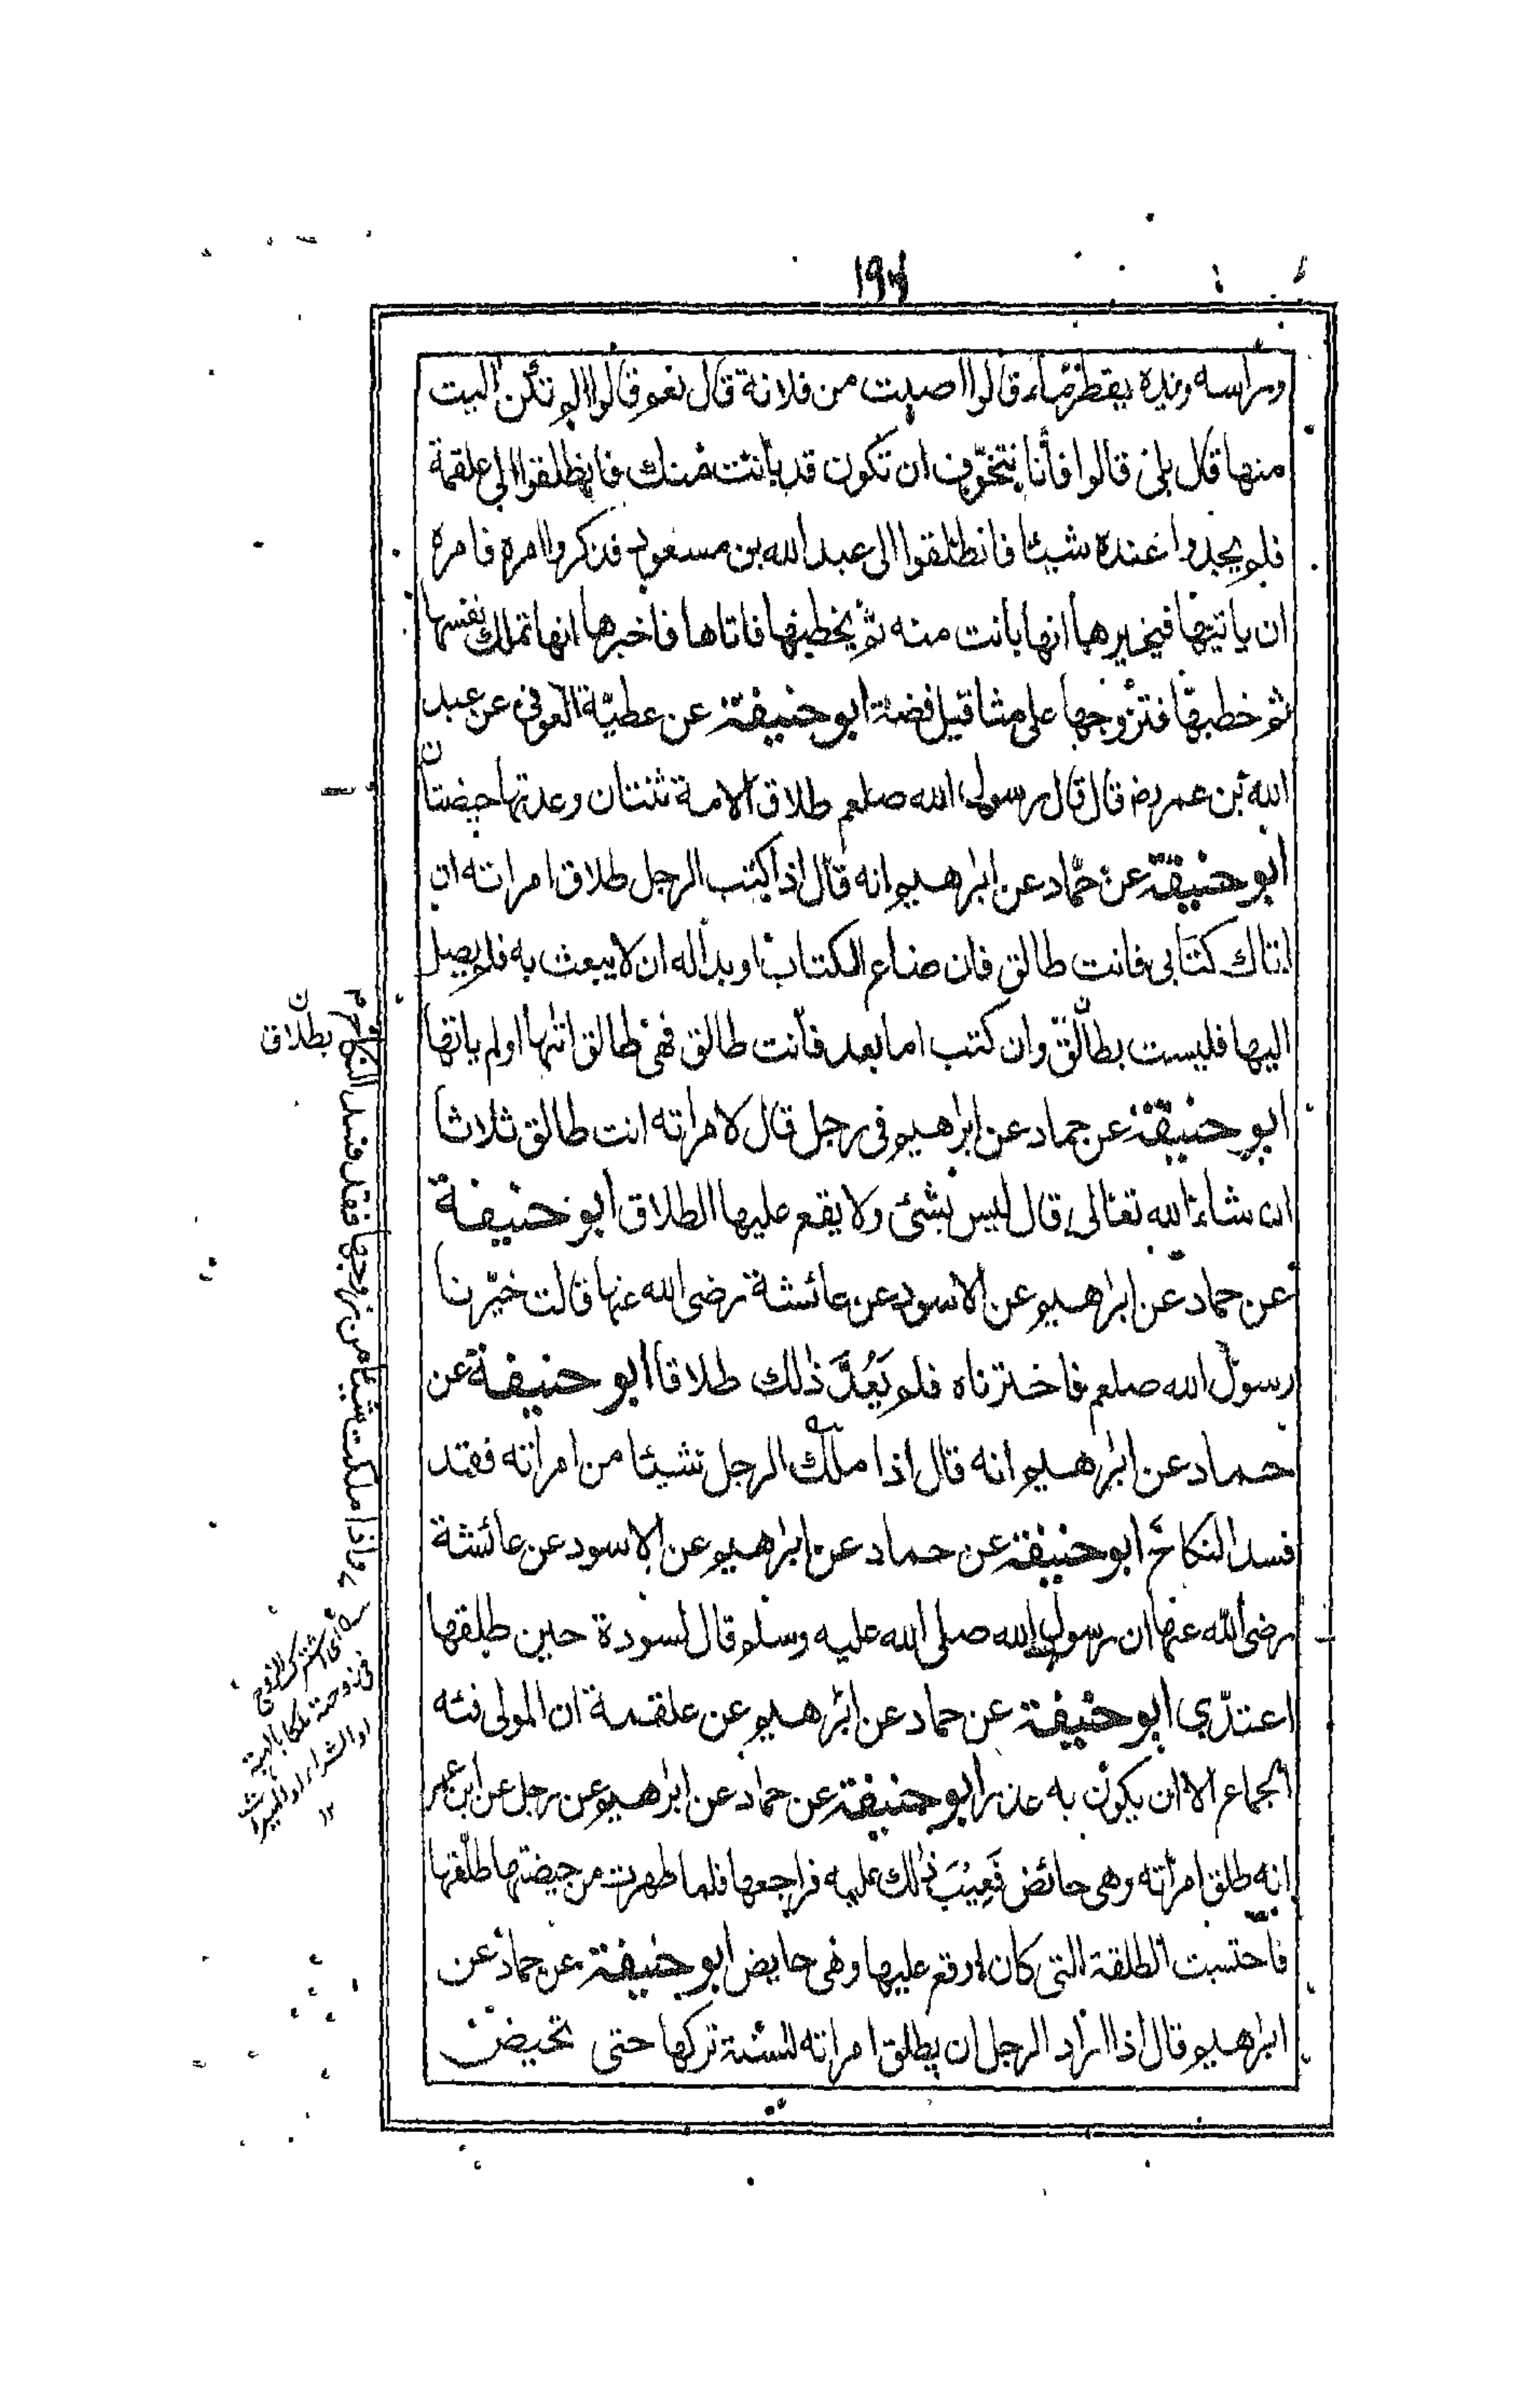 وراسه ويده يقطر ماء قالوا اصبت من فلانة قال نعم قالوا الم تكن اليت
منها قال بلى قالوا فانا نتخوّف ان تكون قد بانت منك فانطلقوا الى علقمة
فلم يجدوا عنده شيئا فانطلقوا الى عبد الله بن مسعود فذكروا امره فامره
ان ياتيها فيخبرها انها بانت منه ثم يخطبها فاتاها فاخبرها انها تملك نفسها
ثم خطبها فتزوجها على مثاقيل فضة ابو حنيفة عن عطيّة العوفي عن عبد
الله بن عمر رض قال قال رسول الله صلعم طلاق الامة ثنتان وعدتها حيضتان
ابو حنيفة عن حمّاد عن ابراهيم انه قال اذا كتب الرجل طلاق امراته ان
اتاك كتابى فانت طالق فان ضاع الكتاب او بدا له ان لا يبعث به فلم يصل
اليها فليست بطالق وان كتب اما بعد فانت طالق فهى طالق اتٰها او لم ياتها
ابو حنيفة عن حماد عن ابراهيم فى رجل قال لامراته انت طالق ثلاثا
ان شاء الله تعالى قال ليس بشئ ولا يقع عليها الطلاق ابو حنيفة
عن حماد عن ابراهيم عن الاسود عن عائشة رضى الله عنها قالت خيّرنا
رسول الله صلعم فاخترناه فلم يَعُدَّ ذلك طلاقا ابو حنيفة عن
حماد عن ابراهيم انه قال اذا ملك الرجل شيئا من امرأته فقد
فسد النكاح ابو حنيفة عن حماد عن ابراهيم عن الاسود عن عائشة
رضى الله عنها ان رسول الله صلى الله عليه وسلم قال لسودة حين طلقها
اعتدّي ابو حنيفة عن حماد عن ابراهيم عن علقمة ان المولى فئه
الجماع الا ان يكون به عذر ابو حنيفة عن حماد عن ابراهيم عن رجل عن ابن عمر
انه طلق امرأته وهى حائض فَعِيْبَ ذلك عليه فراجعها فلما طهرت من حيضتها طلّقها
فاحتسبت الطلقة التى كان اوقع عليها وهى حايض ابو حنيفة عن حماد عن
ابراهيم قال اذا اراد الرجل ان يطلق امراته للسنة تركها حتى تحيض
بطلاق
واذا ملكت شيئا من زوجها فقد فسد النكاح
اى اشترك الزوج
فى زوجته ملكا بالهبة
او الشراء او الميراث
١٢